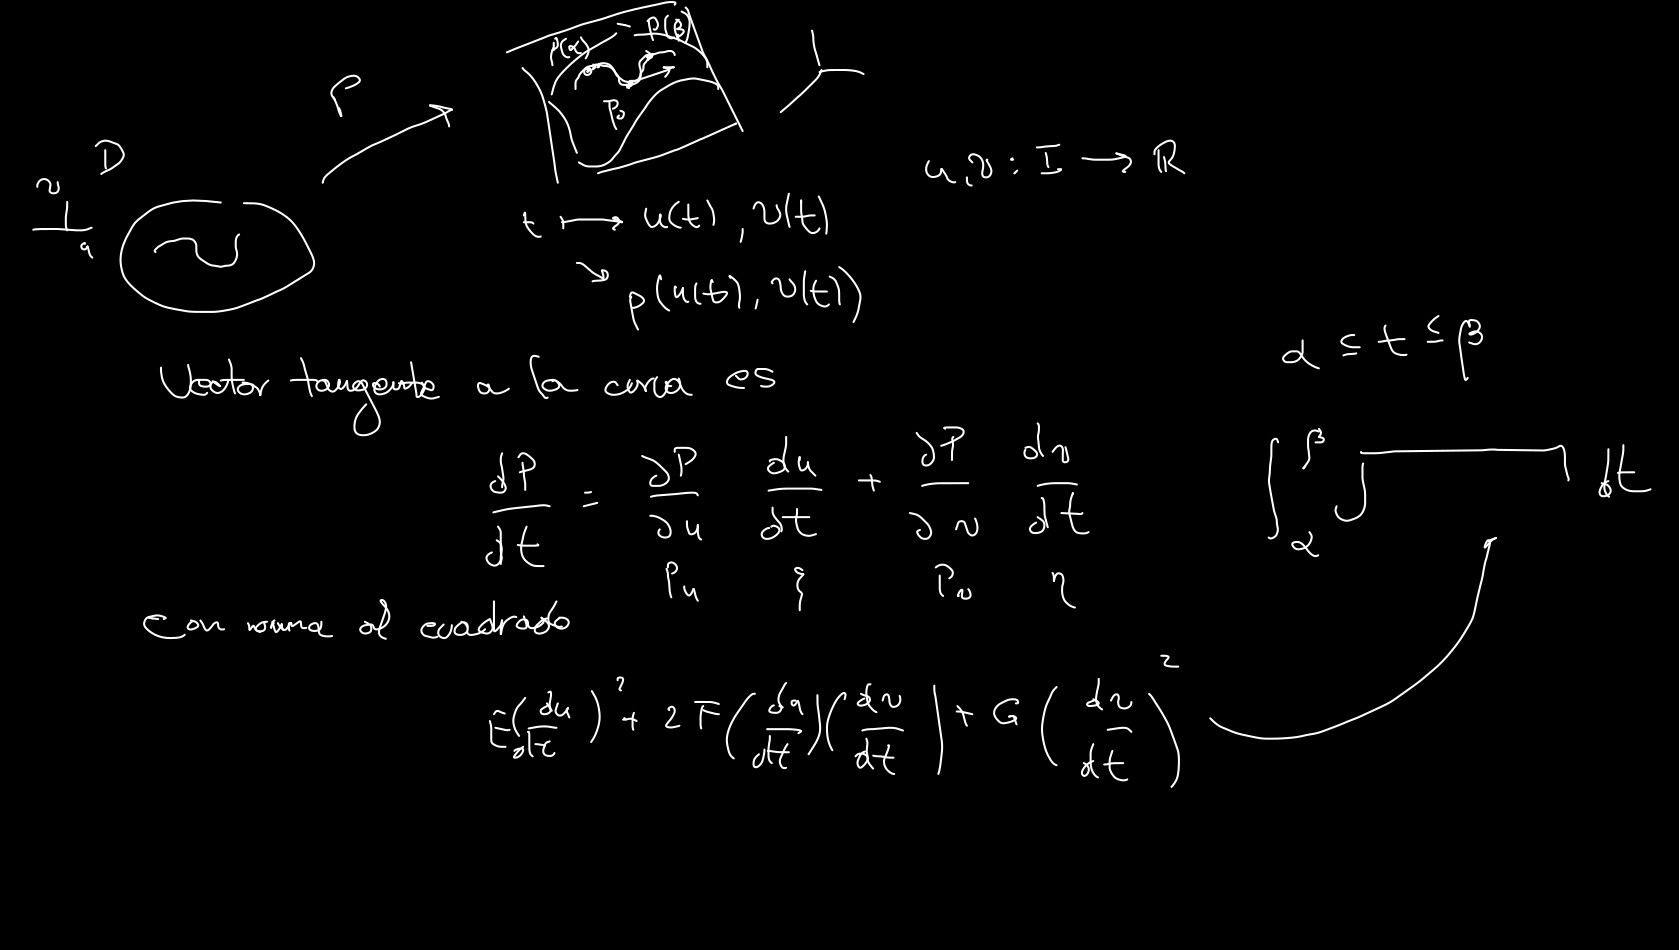 p(α) p(β)
P
p₀
D
v
u
u,v : I → ℝ
t ↦ u(t), v(t)
↘ p(u(t), v(t))
α ≤ t ≤ β
Vector tangente a la curva es
dP/dt = ∂P/∂u du/dt + ∂P/∂v dv/dt
∫_α^β √ dt
Pu ξ Pv η
Con norma al cuadrado
E(du/dt)² + 2F(du/dt)(dv/dt) + G(dv/dt)²